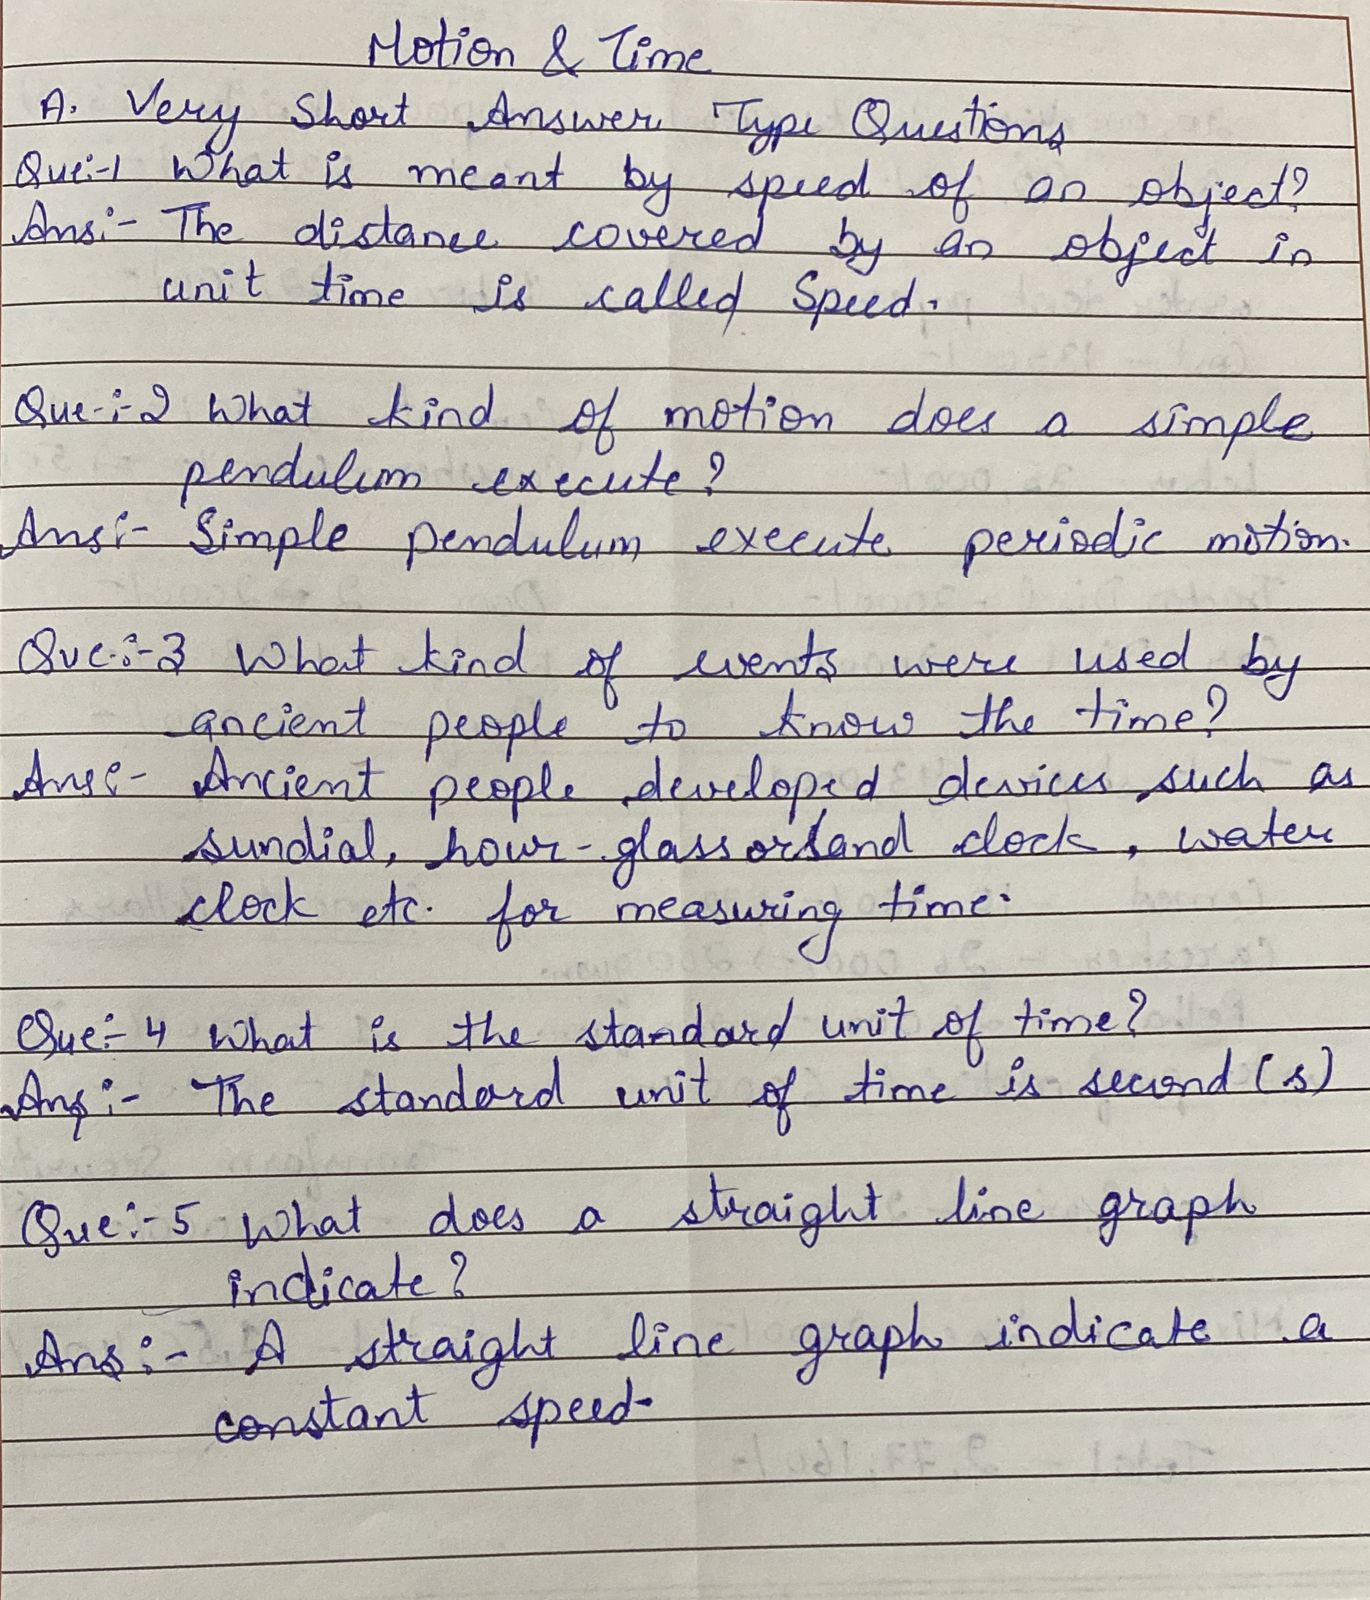 Motion & Time
A. Very Short Answer Type Questions
Que:-1 What is meant by speed of an object?
Ans:- The distance covered by an object in
unit time is called Speed.
Que-:-2 What kind of motion does a simple
pendulum execute?
Ans:- Simple pendulum execute periodic motion.
Que:-3 What kind of events were used by
ancient people to know the time?
Ans:- Ancient people developed devices such as
sundial, hour-glass or sand clock, water
clock etc. for measuring time.
Que:- 4 What is the standard unit of time?
Ans:- The standard unit of time is second (s)
Que:-5 What does a straight line graph
indicate?
Ans:- A straight line graph indicate a
constant speed-